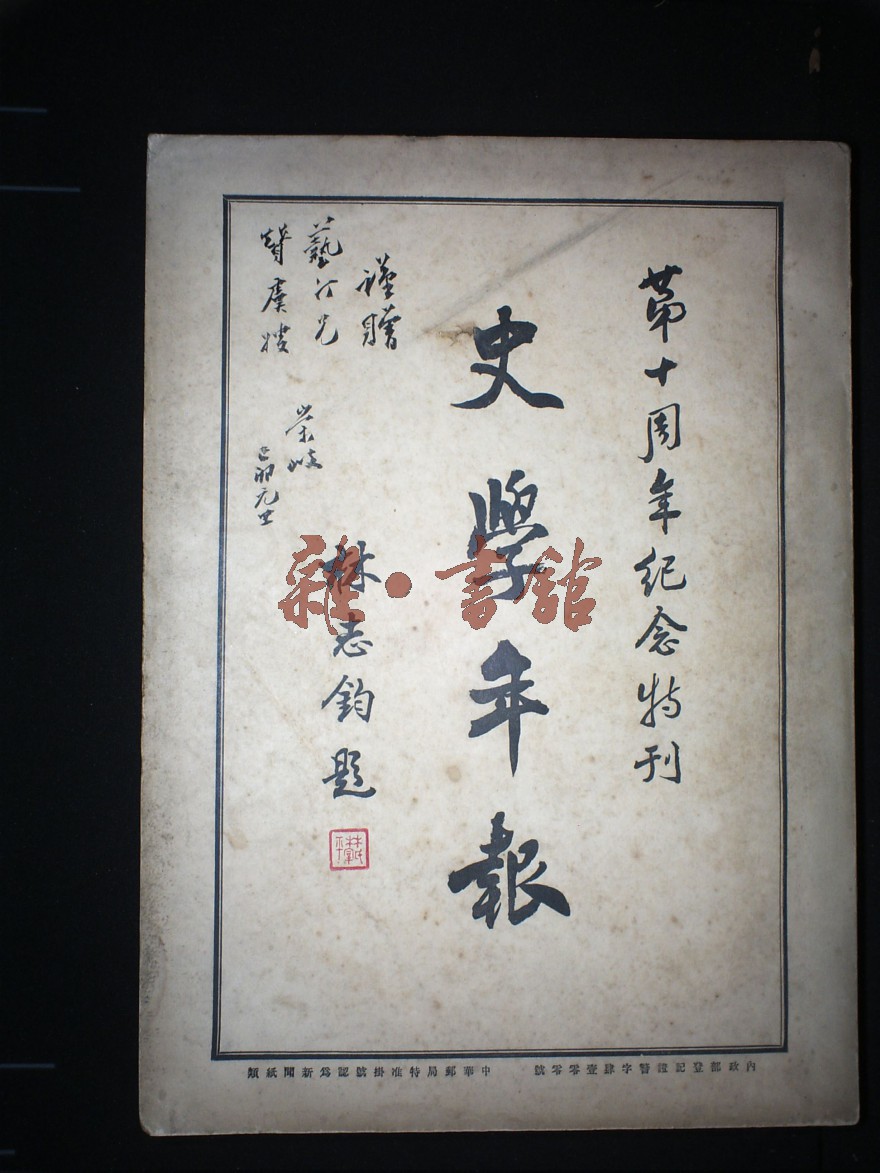 第十周年紀念特刊
史學年報
謹贈
藝汀兄
虞嫂
崇岐
己卯元
林志鈞題
雜·書館
內政部登記證警字肆壹零零號　中華郵局特准掛號認爲新聞紙類